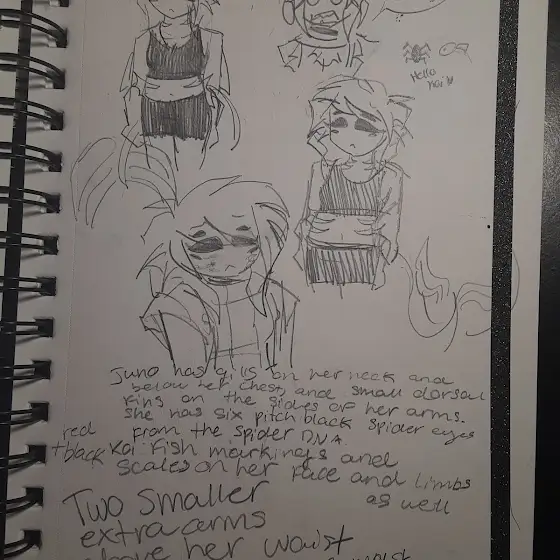 Hello
Kai
Juno has gills on her neck and
below her chest, and small dorsal
fins on the sides of her arms.
She has six pitch black spider eyes
from the spider DNA.
red
+black Koi fish markings and
scales on her face and limbs
as well
Two smaller
extra arms
above her waist
waist